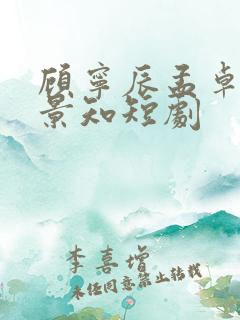 顾宁辰孟卓
景知短劇
李喜增
未经同意禁止转载